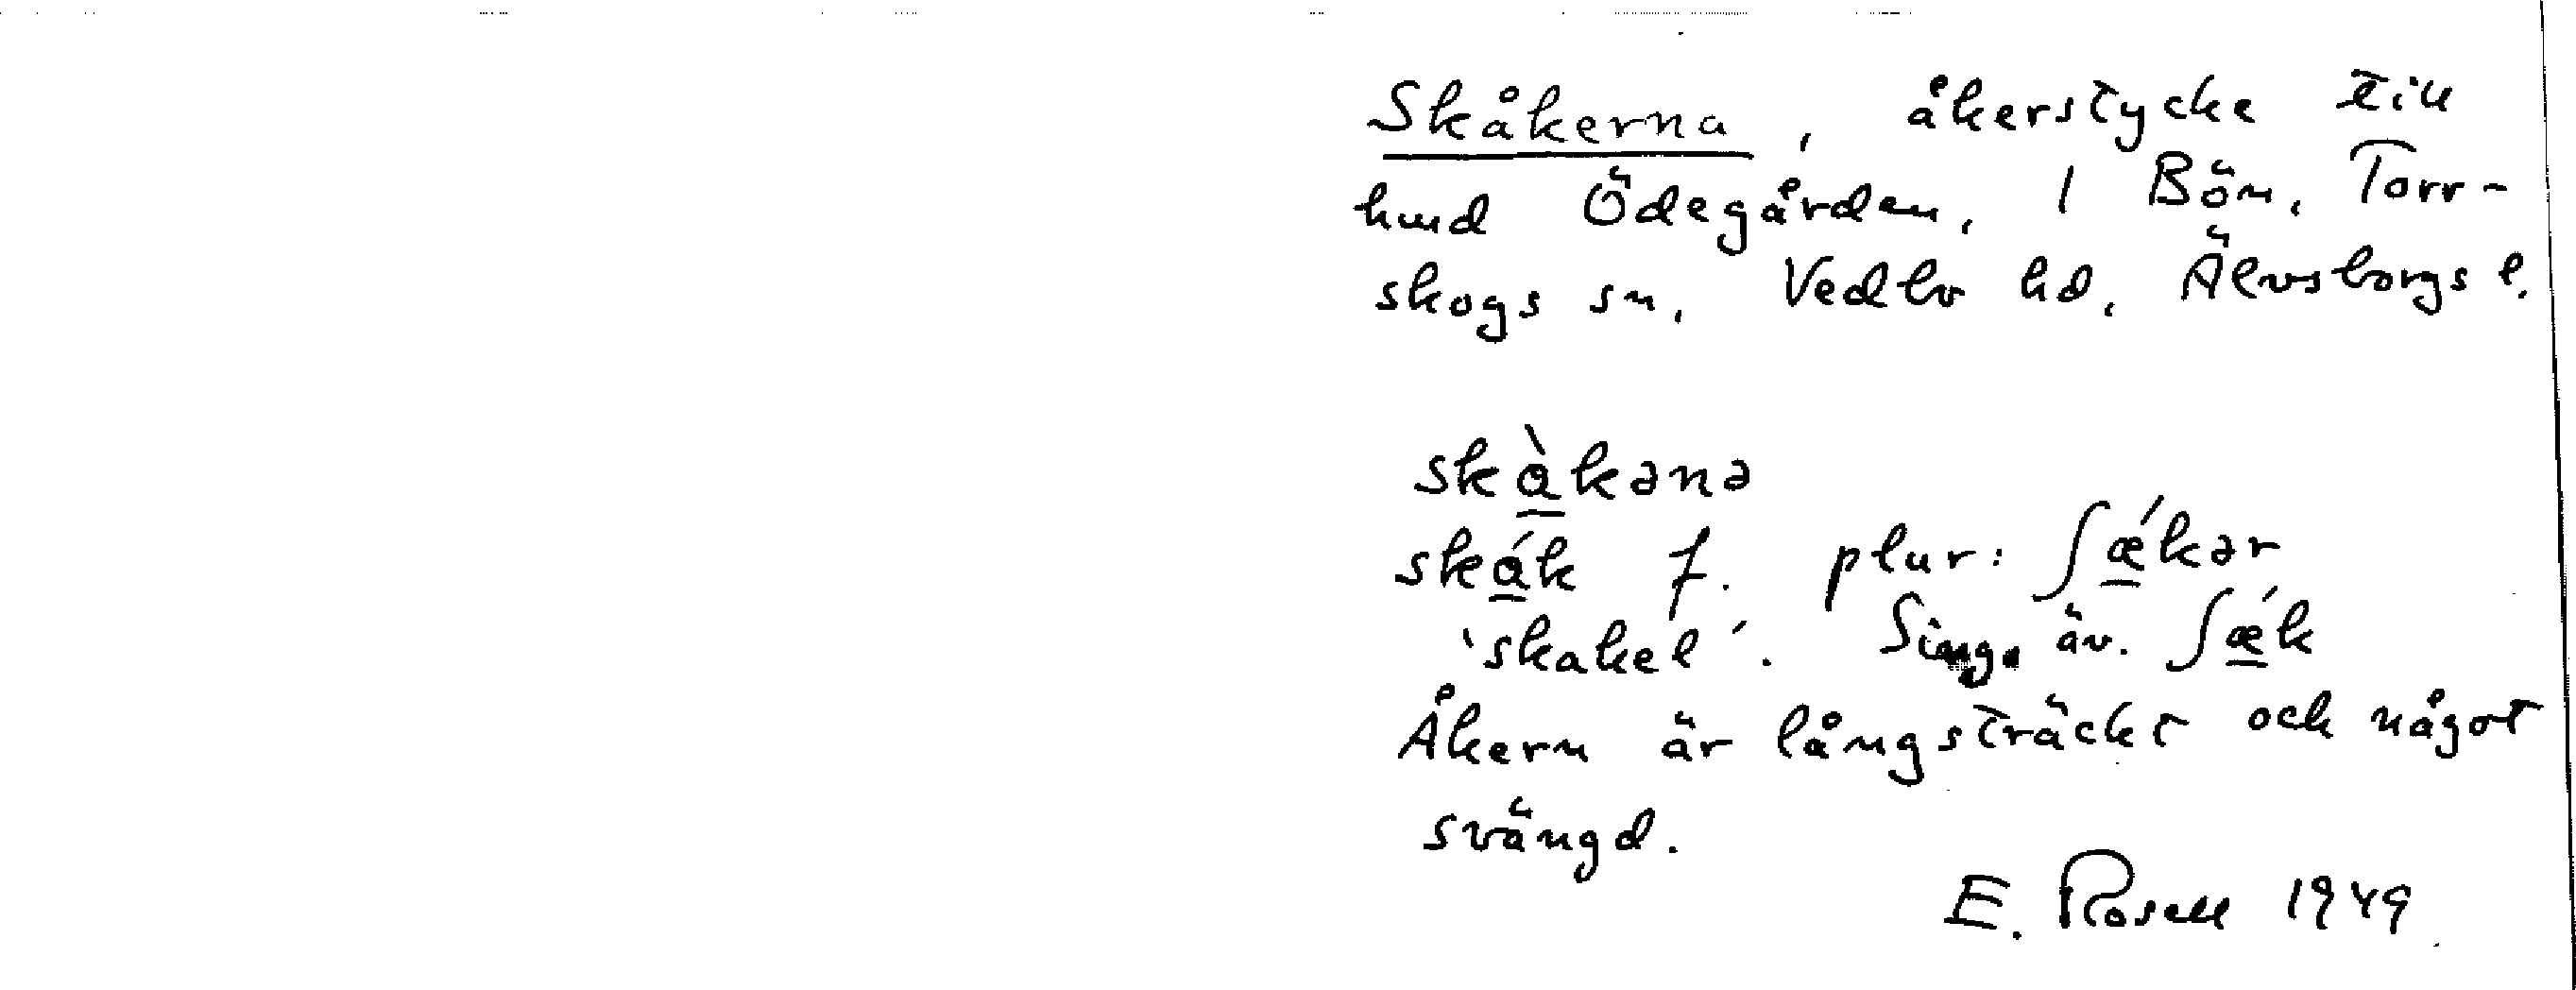 Skåkerna, åkerstycke till
hmd Ödegården, 1 Bön, Torr-
skogs sn, Vedbo hd, Älvsborgs l.
skàkənə
skák f. plur: ʃǽkər
'skakel'. Sing. äv. ʃǽk
Åkern är långsträckt och något
svängd.
E. Rosell 1949